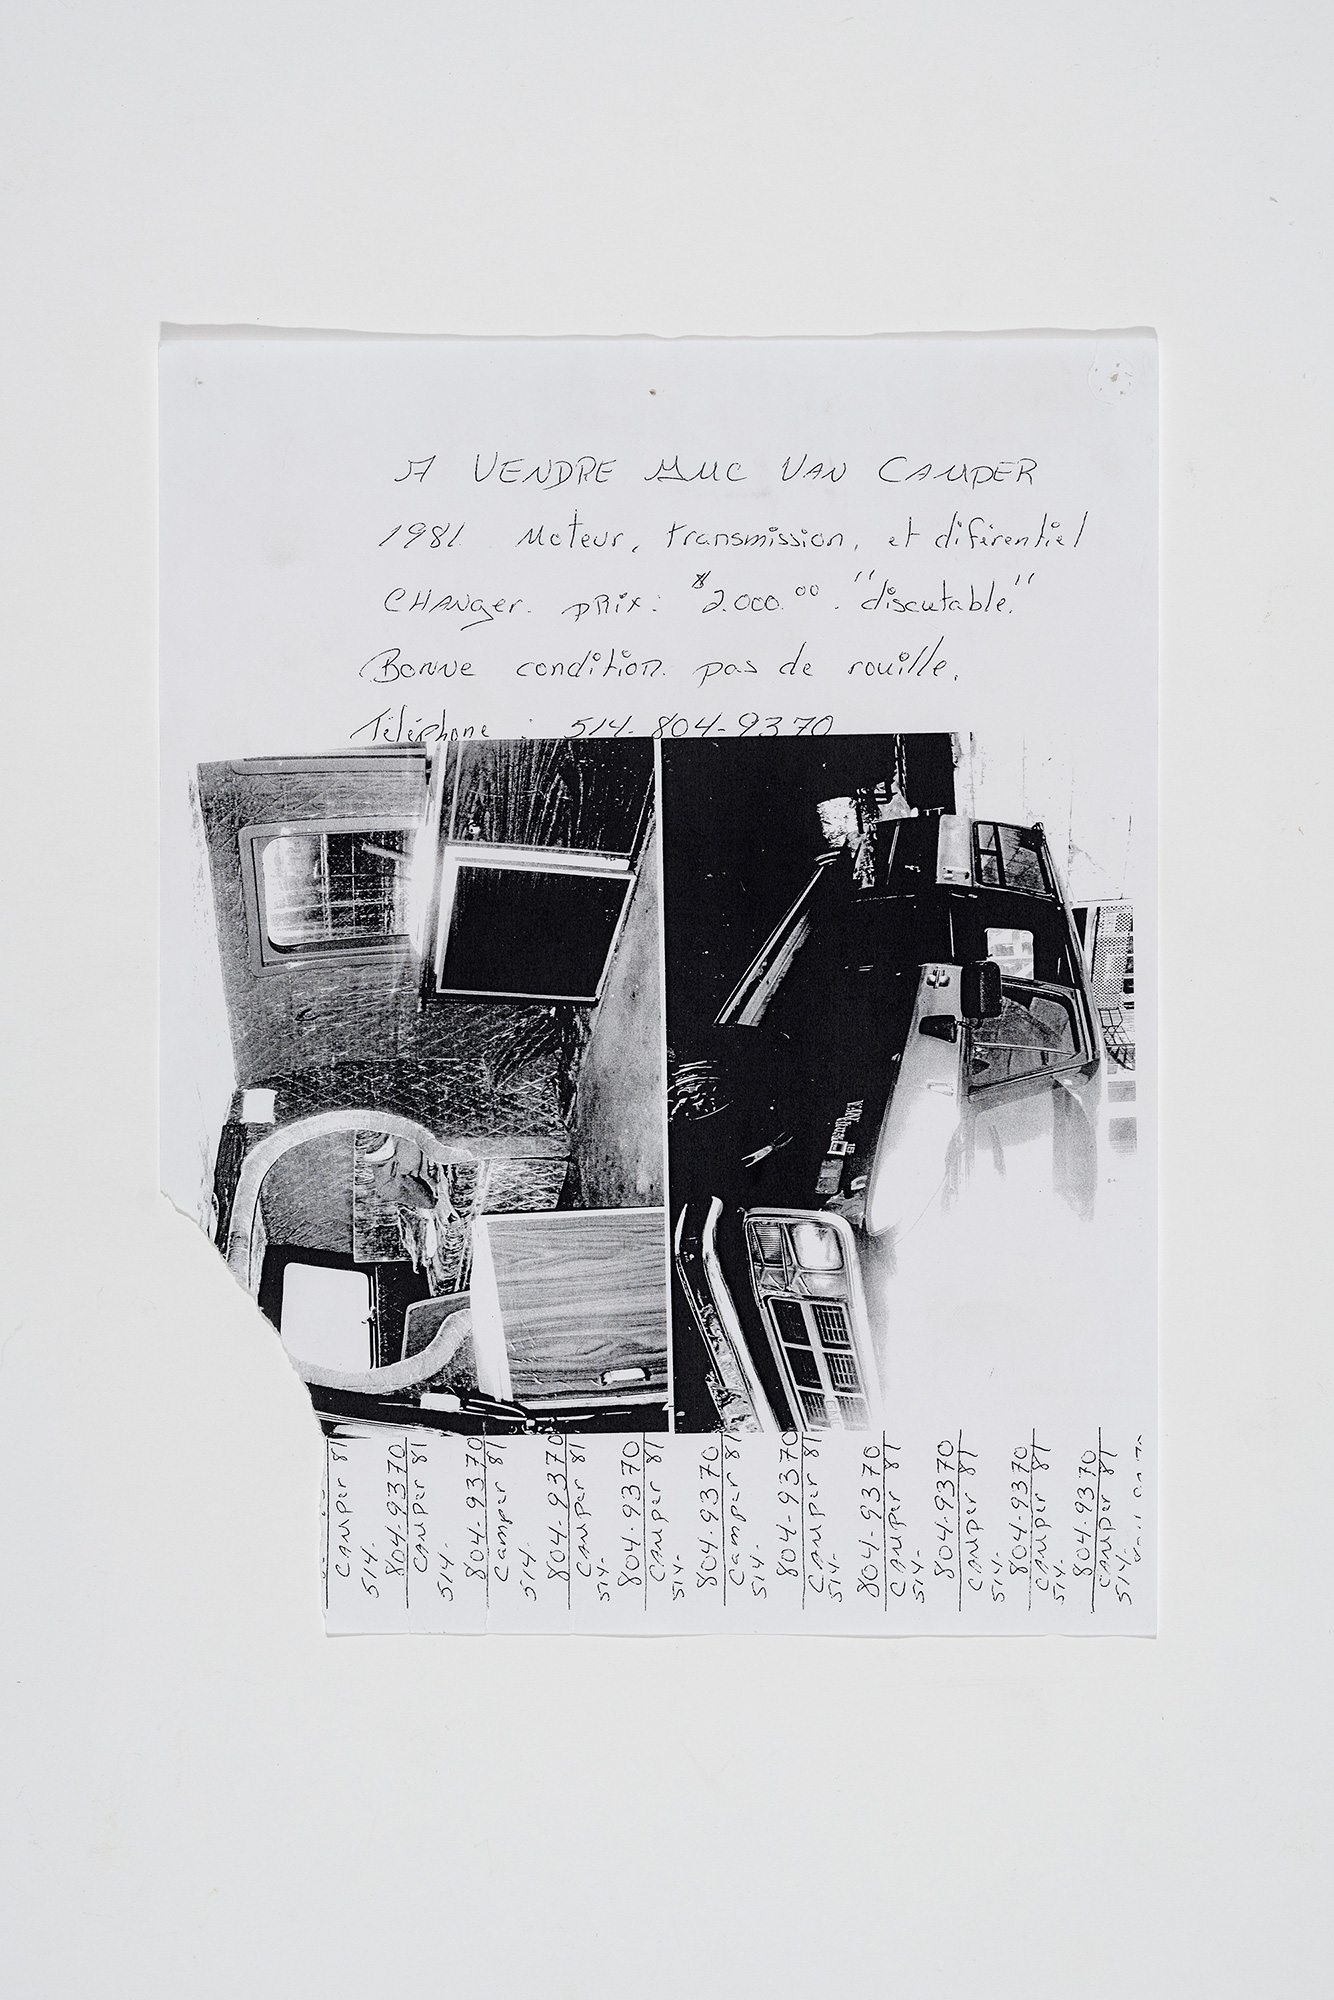 A VENDRE GMC VAN CAMPER
1981. Moteur, transmission, et diférentiel
CHANger. pRix: $2.000.00. "discutable."
Bonne condition. pas de rouille.
Téléphone : 514-804-9370
CAMPER 81
514-
804-9370
CAMPER 81
514-
804-9370
Camper 81
514-
804-9370
CAMPER 81
514-
804-9370
CAMPER 81
514-
804-9370
Camper 81
514-
804-9370
CAMPER 81
514-
804-9370
CAMPER 81
514-
804-9370
CAMPER 81
514-
804-9370
CAMPER 81
514-
804-9370
CAMPER 81
514-